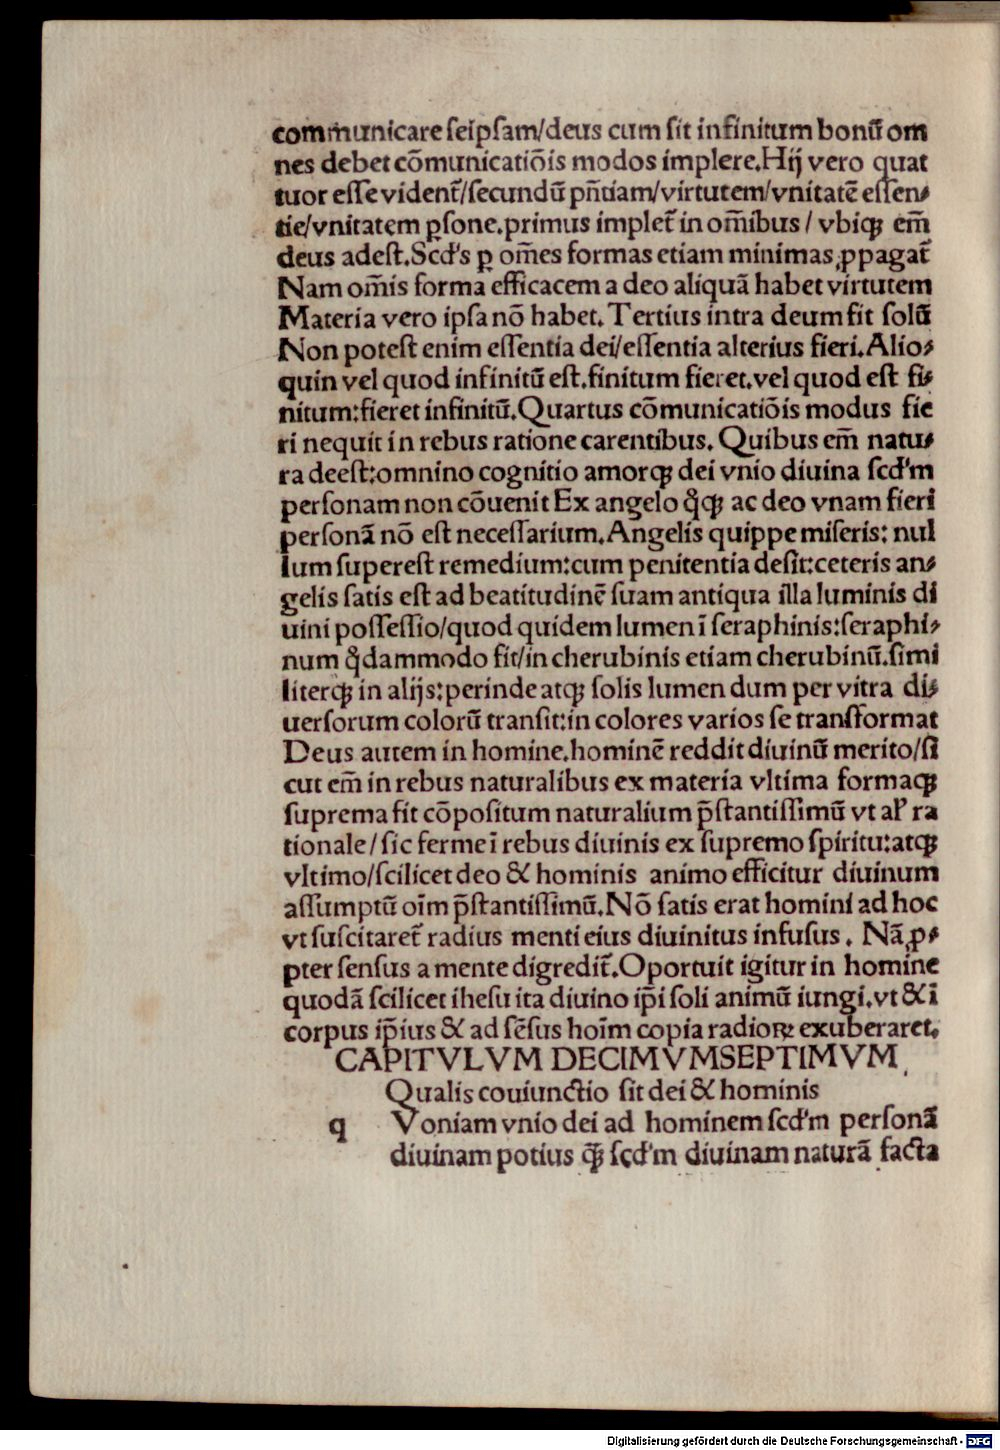 communicare ſeipſam/deus cum ſit infinitum bonū om
nes debet cōmunicatiōis modos implere.Hij vero quat
tuor eſſe vident̃/ſecundū pñtiam/virtutem/vnitatē eſſen⸗
tie/vnitatem ꝑſone.primus implet̃ in om̄ibus / vbiqꝫ em̄
deus adeſt.Scd's ꝑ om̄es formas etiam minimas ꝓpagat̃
Nam om̄is forma efficacem a deo aliquā habet virtutem
Materia vero ipſa nō habet. Tertius intra deum fit ſolū
Non poteſt enim eſſentia dei/eſſentia alterius fieri.Alio⸗
quin vel quod infinitū eſt.finitum fieret.vel quod eſt fi⸗
nitum:fieret infinitū.Quartus cōmunicatiōis modus fie
ri nequit in rebus ratione carentibus. Quibus em̄ natu⸗
ra deeſt:omnino cognitio amorqꝫ dei vnio diuina ſcd'm
perſonam non cōuenit Ex angelo qͥqꝫ ac deo vnam fieri
perſonā nō eſt neceſſarium.Angelis quippe miſeris: nul
lum ſupereſt remedium:cum penitentia deſit:ceteris an⸗
gelis ſatis eſt ad beatitudinē ſuam antiqua illa luminis di
uini poſſeſſio/quod quidem lumen ī ſeraphinis:ſeraphi⸗
num qͥdammodo fit/in cherubinis etiam cherubinū.ſimi
literqꝫ in alijs:perinde atqꝫ ſolis lumen dum per vitra di⸗
uerſorum colorū tranſit:in colores varios ſe tranſformat
Deus autem in homine.hominē reddit diuinū merito/ſi
cut em̄ in rebus naturalibus ex materia vltima formaqꝫ
ſuprema fit cōpoſitum naturalium p̄ſtantiſſimū vt al' ra
tionale/ſic ferme ī rebus diuinis ex ſupremo ſpiritu:atqꝫ
vltimo/ſcilicet deo & hominis animo efficitur diuinum
aſſumptū oīm p̄ſtantiſſimū.Nō ſatis erat homini ad hoc
vt ſuſcitaret̃ radius menti eius diuinitus infuſus. Nā ꝓ⸗
pter ſenſus a mente digredit̃.Oportuit igitur in homine
quodā ſcilicet iheſu ita diuino ip̄i ſoli animū iungi.vt & ī
corpus ip̄ius & ad ſēſus hoīm copia radioꝝ exuberaret.
CAPITVLVM DECIMVMSEPTIMVM.
Qualis couiunctio ſit dei & hominis
q Voniam vnio dei ad hominem ſcd'm perſonā
diuinam potius qꝫ̄ ſcd'm diuinam naturā facta
Digitalisierung gefördert durch die Deutsche Forschungsgemeinschaft - DFG